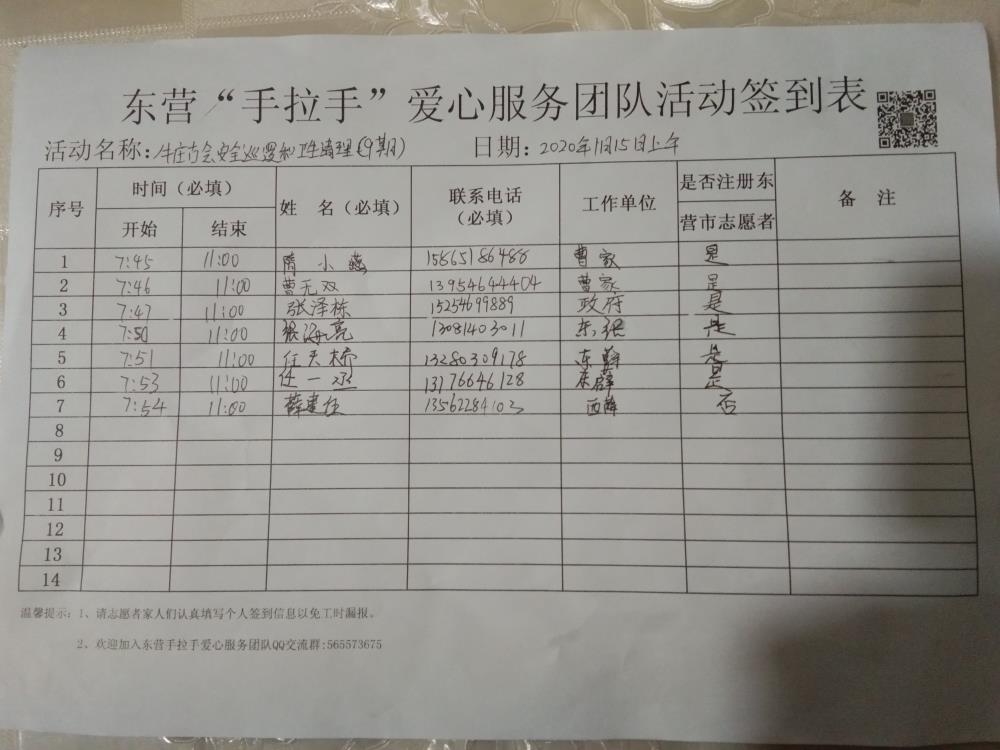 东营“手拉手”爱心服务团队活动签到表
活动名称：牛庄古会安全巡逻和卫生清理（9期） 日期：2020年11月15日上午
序号 时间（必填） 姓 名（必填） 联系电话（必填） 工作单位 是否注册东营市志愿者 备 注
开始 结束
1 7:45 11:00 隋小燕 15865186488 曹家 是
2 7:46 11:00 曹无双 13954644404 曹家 是
3 7:47 11:00 张泽栋 15254699889 政府 是
4 7:50 11:00 张海亮 13081403011 东张 是
5 7:51 11:00 任天桥 13280309178 是
6 7:53 11:00 任一丞 13176646128 东薛 是
7 7:54 11:00 薛建任 13562284103 西薛 否
8
9
10
11
12
13
14
温馨提示：1、请志愿者家人们认真填写个人签到信息以免工时漏报。
2、欢迎加入东营手拉手爱心服务团队QQ交流群:565573675